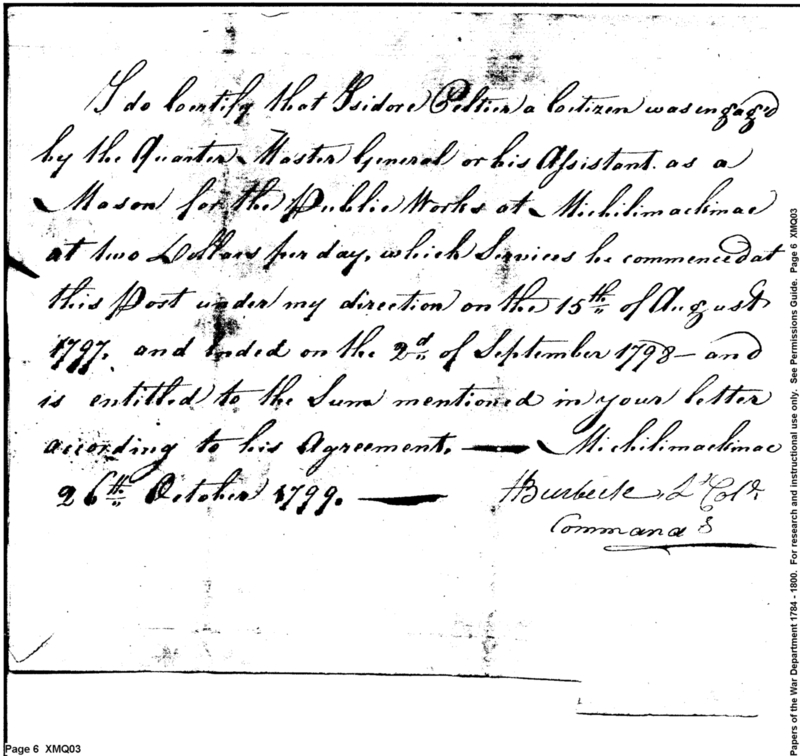 I do Certify that Isidore Peltier a Citizen was engaged
by the Quarter Master General or his Assistant as a
Mason for the Public Works at Michilimackinac
at two Dollars per day, which Services he commenced at
this Post under my direction on the 15th of August
1797. and Ended on the 2d of September 1798 – and
is entitled to the Sum mentioned in your letter
according to his Agreement. — Michilimackinac
26th October 1799. —
HBurbeck Lt Colo
Commandg
Page 6 XMQ03
Papers of the War Department 1784 - 1800. For research and instructional use only. See Permissions Guide. Page 6 XMQ03